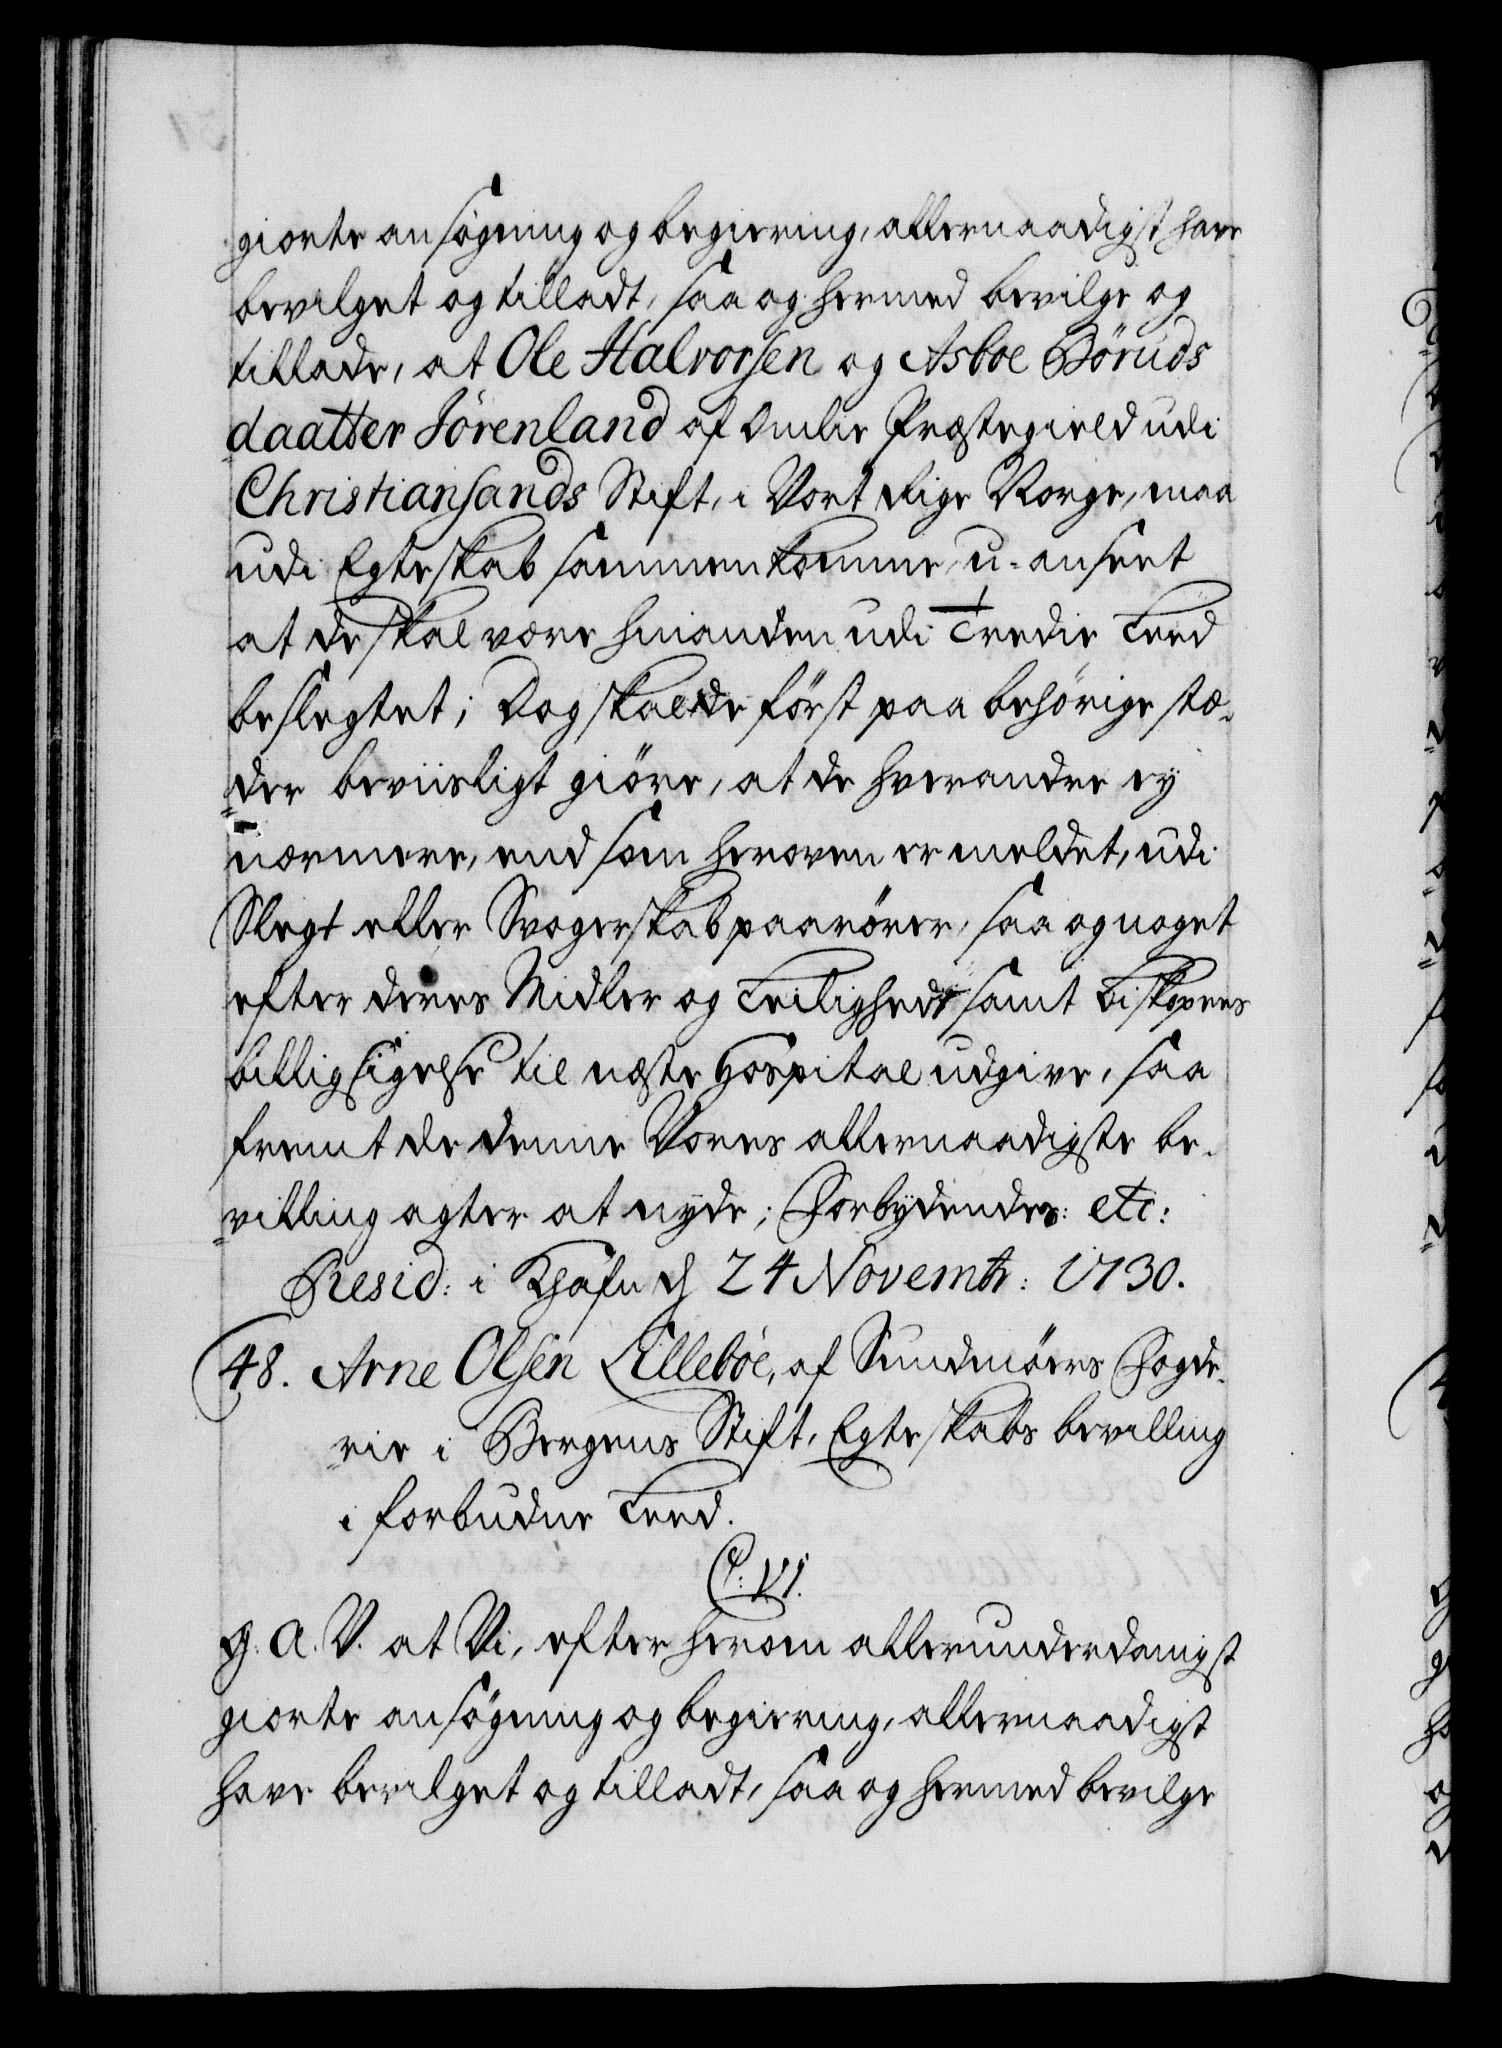 giorte ansøgning og begiering, allernaadigst have
bevilget og tilladt, saa og hermed bevilge og
tillade, at Ole Halvorsen og Asboe Böruds
daatter Sörenland af Omlie Præstegield udi
Christiansands Stift, i Vort Rige Norge, maa
udi Egteskab sammenkomme, u-anseet
at de skal være hinanden udi Tredie Leed
beslegtet; Dog skal de först paa behörige stæ-
der beviisligt giöre, at de hverandre ey
nærmere, end som heroven er meldet, udi
Slegt eller Svogerskab paarörer, saa og noget
efter deres Midler og Leilighed samt Biskopens
billig sigelse til næste Hospital udgive, saa
fremt de denne Vores allernaadigste be-
villing agter at nyde; Forbydendes: etc:
Resid: i Khafn d 24 Novembr: 1730.
48. Arne Olsen Lilleböe, af Sundmöers Fogde-
rie i Bergens Stift, Egteskabs bevilling
i forbudne Leed.
C: VI.
G. A. V. at Vi, efter herom allerunderdanigst
giorte ansögning og begiering, allernaadigst
have bevilget og tilladt, saa og hermed bevilge